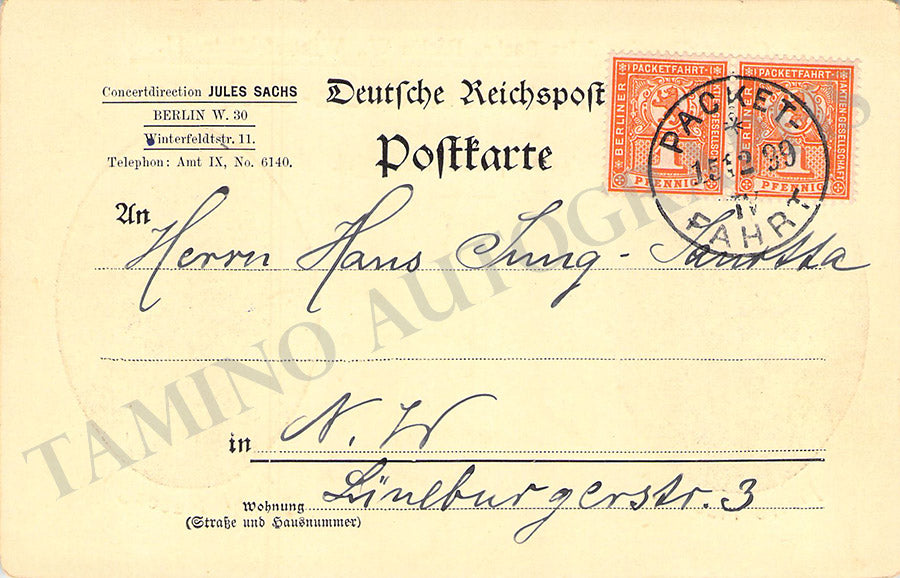 Concertdirection JULES SACHS
BERLIN W. 30
Winterfeldtstr. 11.
Telephon: Amt IX, No. 6140.
Deutsche Reichspost
Postkarte
PACKETFAHRT-
BERLINER
GESELLSCHAFT
1
PFENNIG
PACKETFAHRT-
KARTEN-GESELLSCHAFT
PFENNIG
PACKET-
*
15 12 99
IV
FAHRT
An
Herrn Hans Jung-
in N. W
Wohnung Lüneburgerstr. 3
(Straße und Hausnummer)
TAMINO AUTOGRAPHS